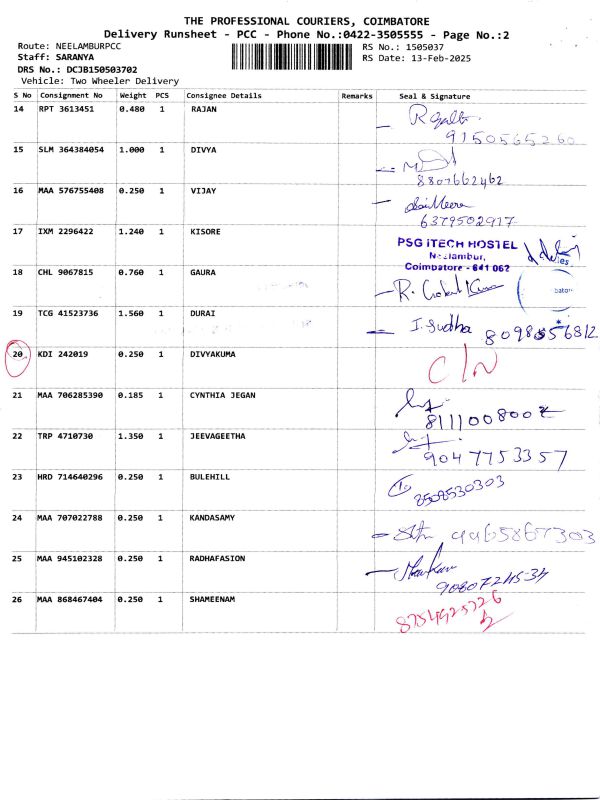 THE PROFESSIONAL COURIERS, COIMBATORE
Delivery Runsheet - PCC - Phone No.:0422-3505555 - Page No.:2
Route: NEELAMBURPCC RS No.: 1505037
Staff: SARANYA RS Date: 13-Feb-2025
DRS No.: DCJB150503702
Vehicle: Two Wheeler Delivery
S No Consignment No Weight PCS Consignee Details Remarks Seal & Signature
14 RPT 3613451 0.480 1 RAJAN
9150565260
15 SLM 364384054 1.000 1 DIVYA
8807662462
16 MAA 576755408 0.250 1 VIJAY
6379502917
17 IXM 2296422 1.240 1 KISORE
PSG iTECH HOSTEL
Neelambur,
Coimbatore - 641 062
18 CHL 9067815 0.760 1 GAURA
19 TCG 41523736 1.560 1 DURAI I. Sudha
20 KDI 242019 0.250 1 DIVYAKUMA C/N
21 MAA 706285390 0.185 1 CYNTHIA JEGAN
22 TRP 4710730 1.350 1 JEEVAGEETHA
9047753357
23 HRD 714640296 0.250 1 BULEHILL
24 MAA 707022788 0.250 1 KANDASAMY
25 MAA 945102328 0.250 1 RADHAFASION
26 MAA 868467404 0.250 1 SHAMEENAM